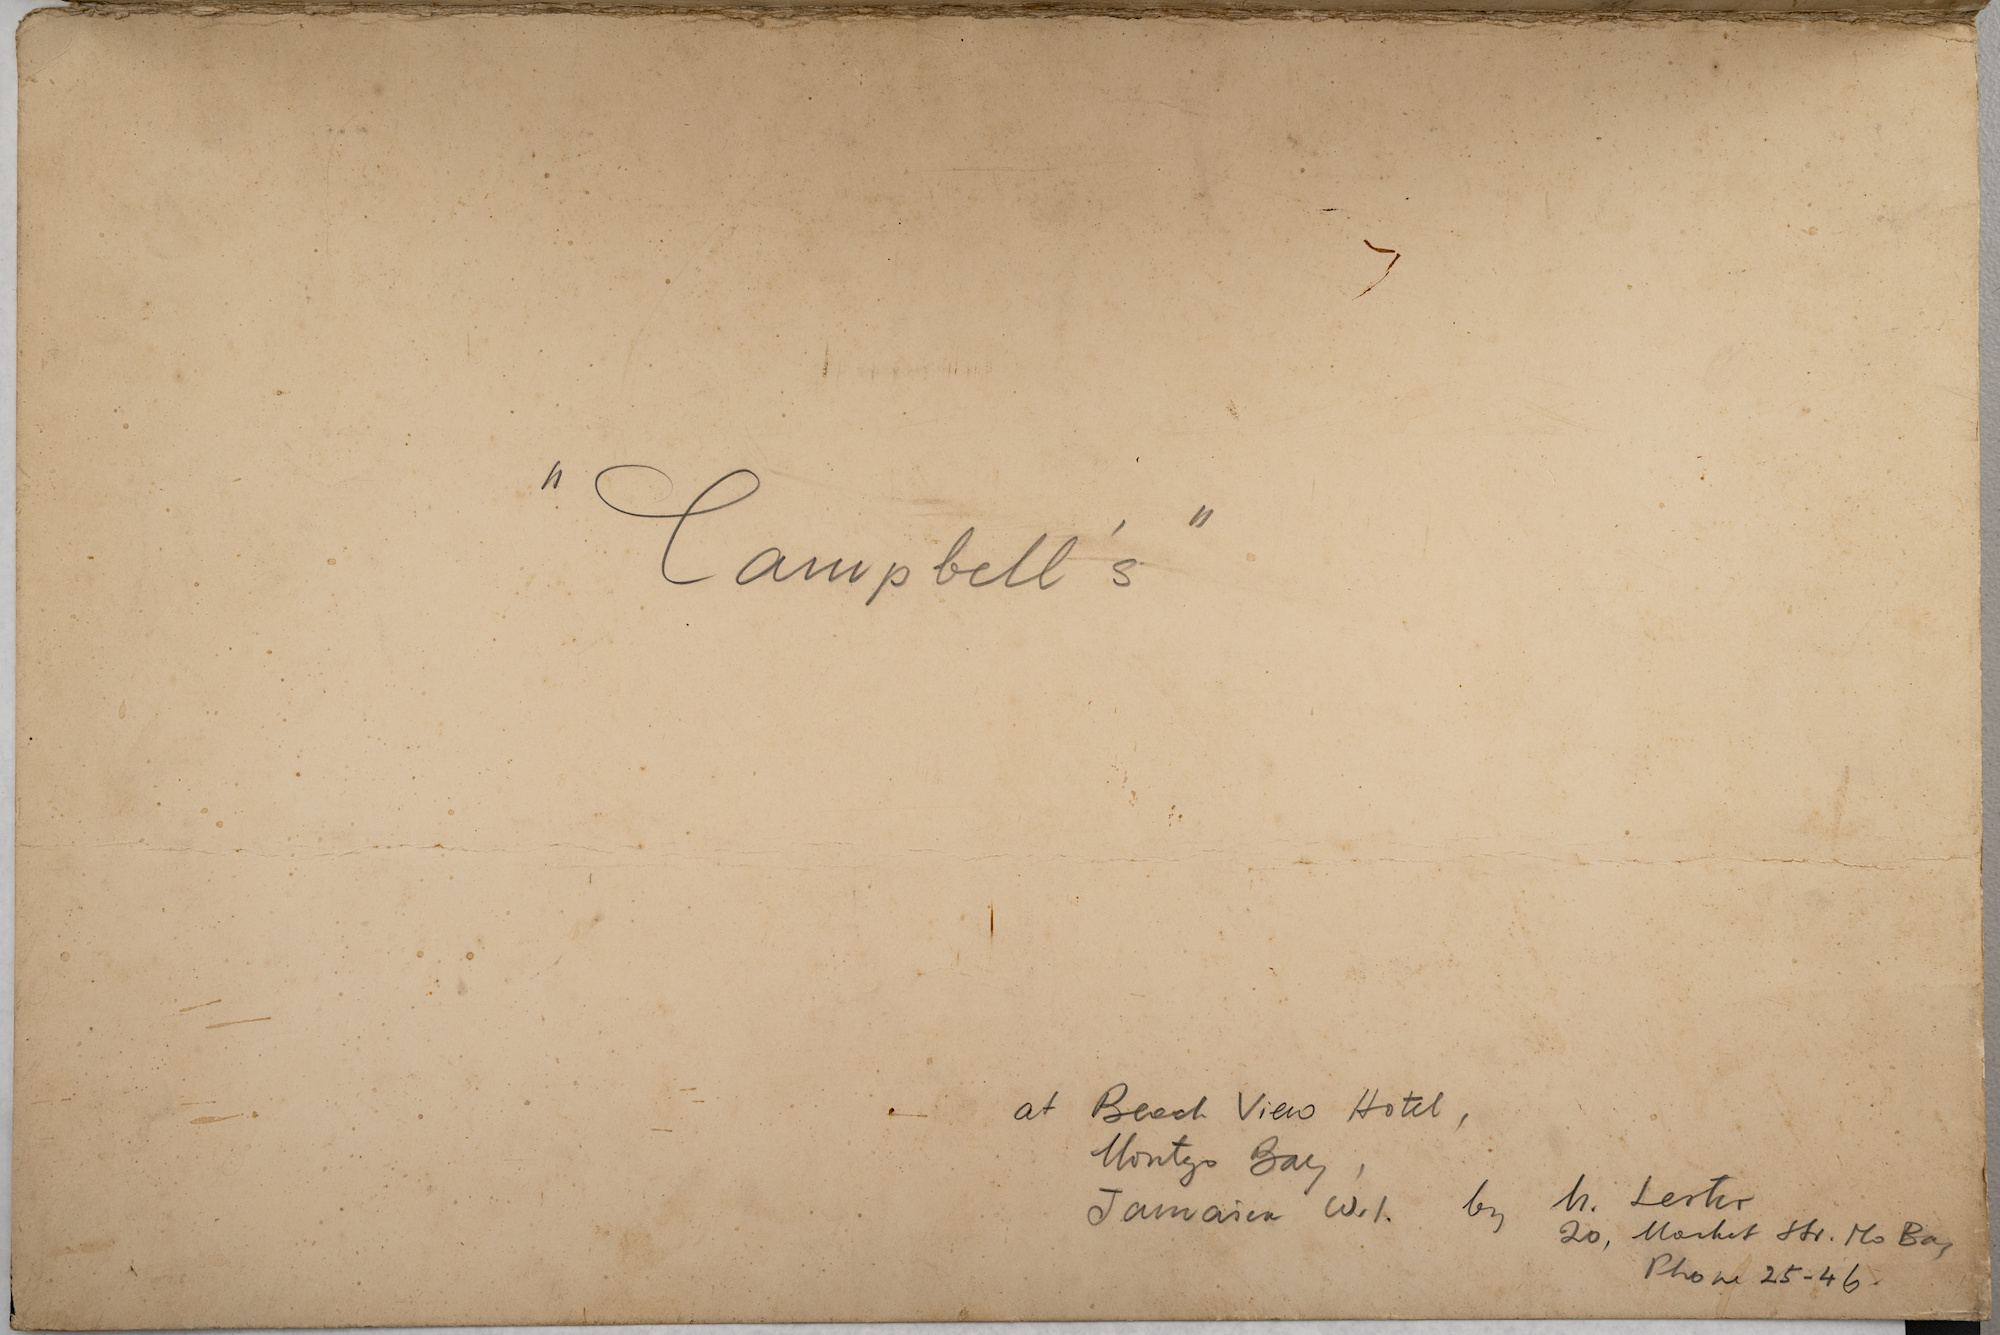 "Campbell's"
at Beach View Hotel,
Montego Bay,
Jamaica W.I. by M. Lester
20, Market Str. Mo Bay
Phone 25-46.